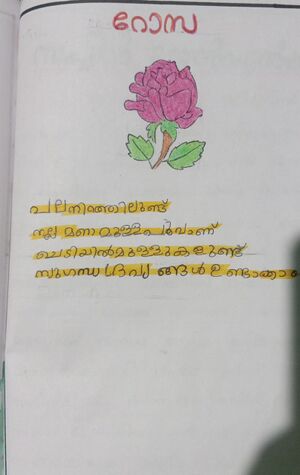 റോസ
പലനിറത്തിലുണ്ട്
നല്ല മണമുള്ളപൂവാണ്
ചെടിയിൽമുള്ളുകളുണ്ട്
സുഗന്ധ ദ്രവ്യ ങ്ങൾ ഉണ്ടാക്കാൻ